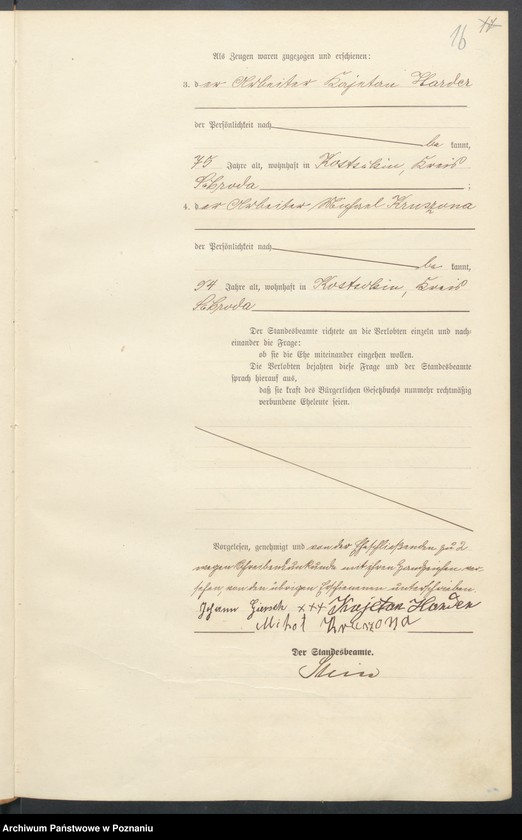 16
Als Zeugen waren zugezogen und erschienen:
3. der Arbeiter Kajetan Harder
der Persönlichkeit nach
be kannt,
75 Jahre alt, wohnhaft in Kostschin, Kreis
Schroda ;
4. der Arbeiter Michael Kruszona
der Persönlichkeit nach
be kannt,
54 Jahre alt, wohnhaft in Kostschin, Kreis
Schroda
Der Standesbeamte richtete an die Verlobten einzeln und nach-
einander die Frage:
ob sie die Ehe miteinander eingehen wollen.
Die Verlobten bejahten diese Frage und der Standesbeamte
sprach hierauf aus,
daß sie kraft des Bürgerlichen Gesetzbuchs nunmehr rechtmäßig
verbundene Eheleute seien.
Vorgelesen, genehmigt und von der Eheschließenden zu 2
wegen Schreibensunkunde mit ihren Handzeichen ver-
sehen, von den übrigen Erschienenen unterschrieben.
Johann +++ Kajetan Harder
Mihal Kruszona
Der Standesbeamte.
Stein
Archiwum Państwowe w Poznaniu